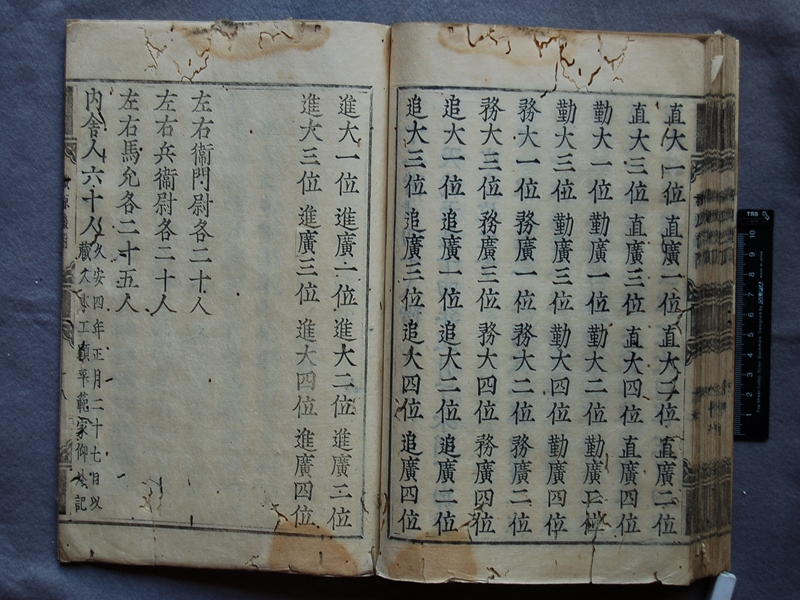 直大一位 直廣一位 直大二位 直廣二位
直大三位 直廣三位 直大四位 直廣四位
勤大一位 勤廣一位 勤大二位 勤廣二位
勤大三位 勤廣三位 勤大四位 勤廣四位
務大一位 務廣一位 務大二位 務廣二位
務大三位 務廣三位 務大四位 務廣四位
追大一位 追廣一位 追大二位 追廣二位
追大三位 追廣三位 追大四位 追廣四位
進大一位 進廣一位 進大二位 進廣二位
進大三位 進廣三位 進大四位 進廣四位
左右衞門尉各二十人
左右兵衞尉各二十人
左右馬允各二十五人
内舍人六十人
久安四年正月二十七日以
藏人木工頭平範家仰 記